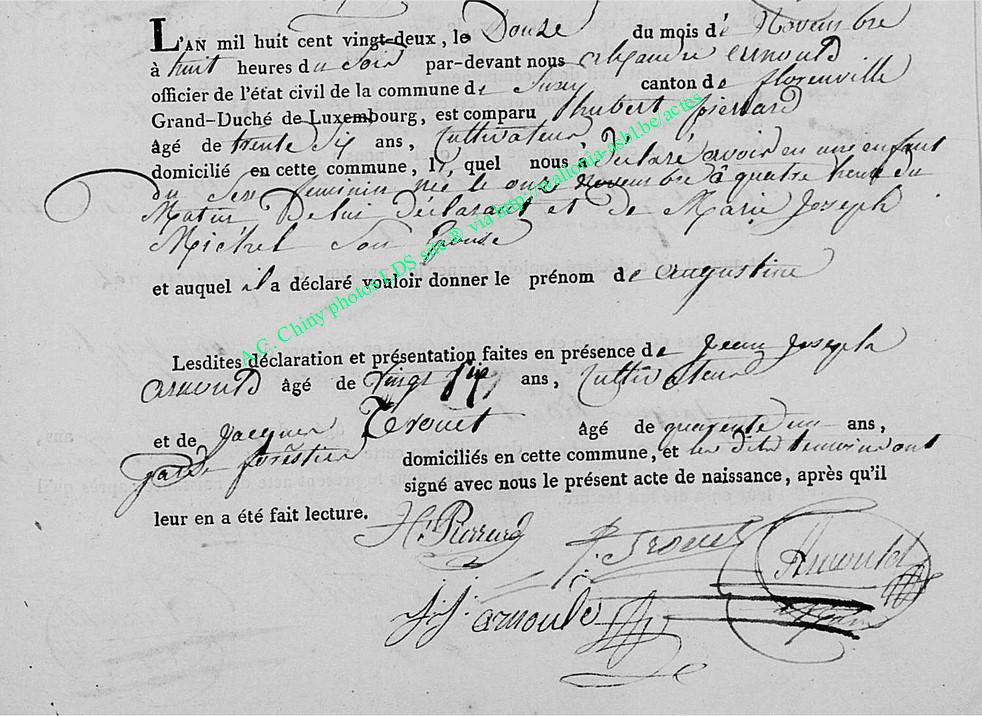 L'AN mil huit cent vingt-deux, le Douze du mois de Novembre
à huit heures du Soir par-devant nous alexandre arnould
officier de l'état civil de la commune de Suxy canton de florenville
Grand-Duché de Luxembourg, est comparu hubert pierrard
âgé de trente Six ans, Cultivateur
domicilié en cette commune, le quel nous à Déclaré avoir eu une enfant
du Sexe feminin née le onze Novembre à quatre heure du
Matin De lui déclarant et de Marie Joseph
Michel Son Epouse
et auquel il a déclaré vouloir donner le prénom de augustine
Lesdites déclaration et présentation faites en présence de Jean Joseph
arnould âgé de vingt six ans, Cultivateur
et de Jacques Trouet âgé de quarente un ans,
garde forêstier domiciliés en cette commune, et les dits temoins ont
signé avec nous le présent acte de naissance, après qu'il
leur en a été fait lecture.
H. Pierrard J. Trouet Arnould
J.J. arnould
A.G. Chiny photos LDS site® via http://wallonia-asbl.be/actes